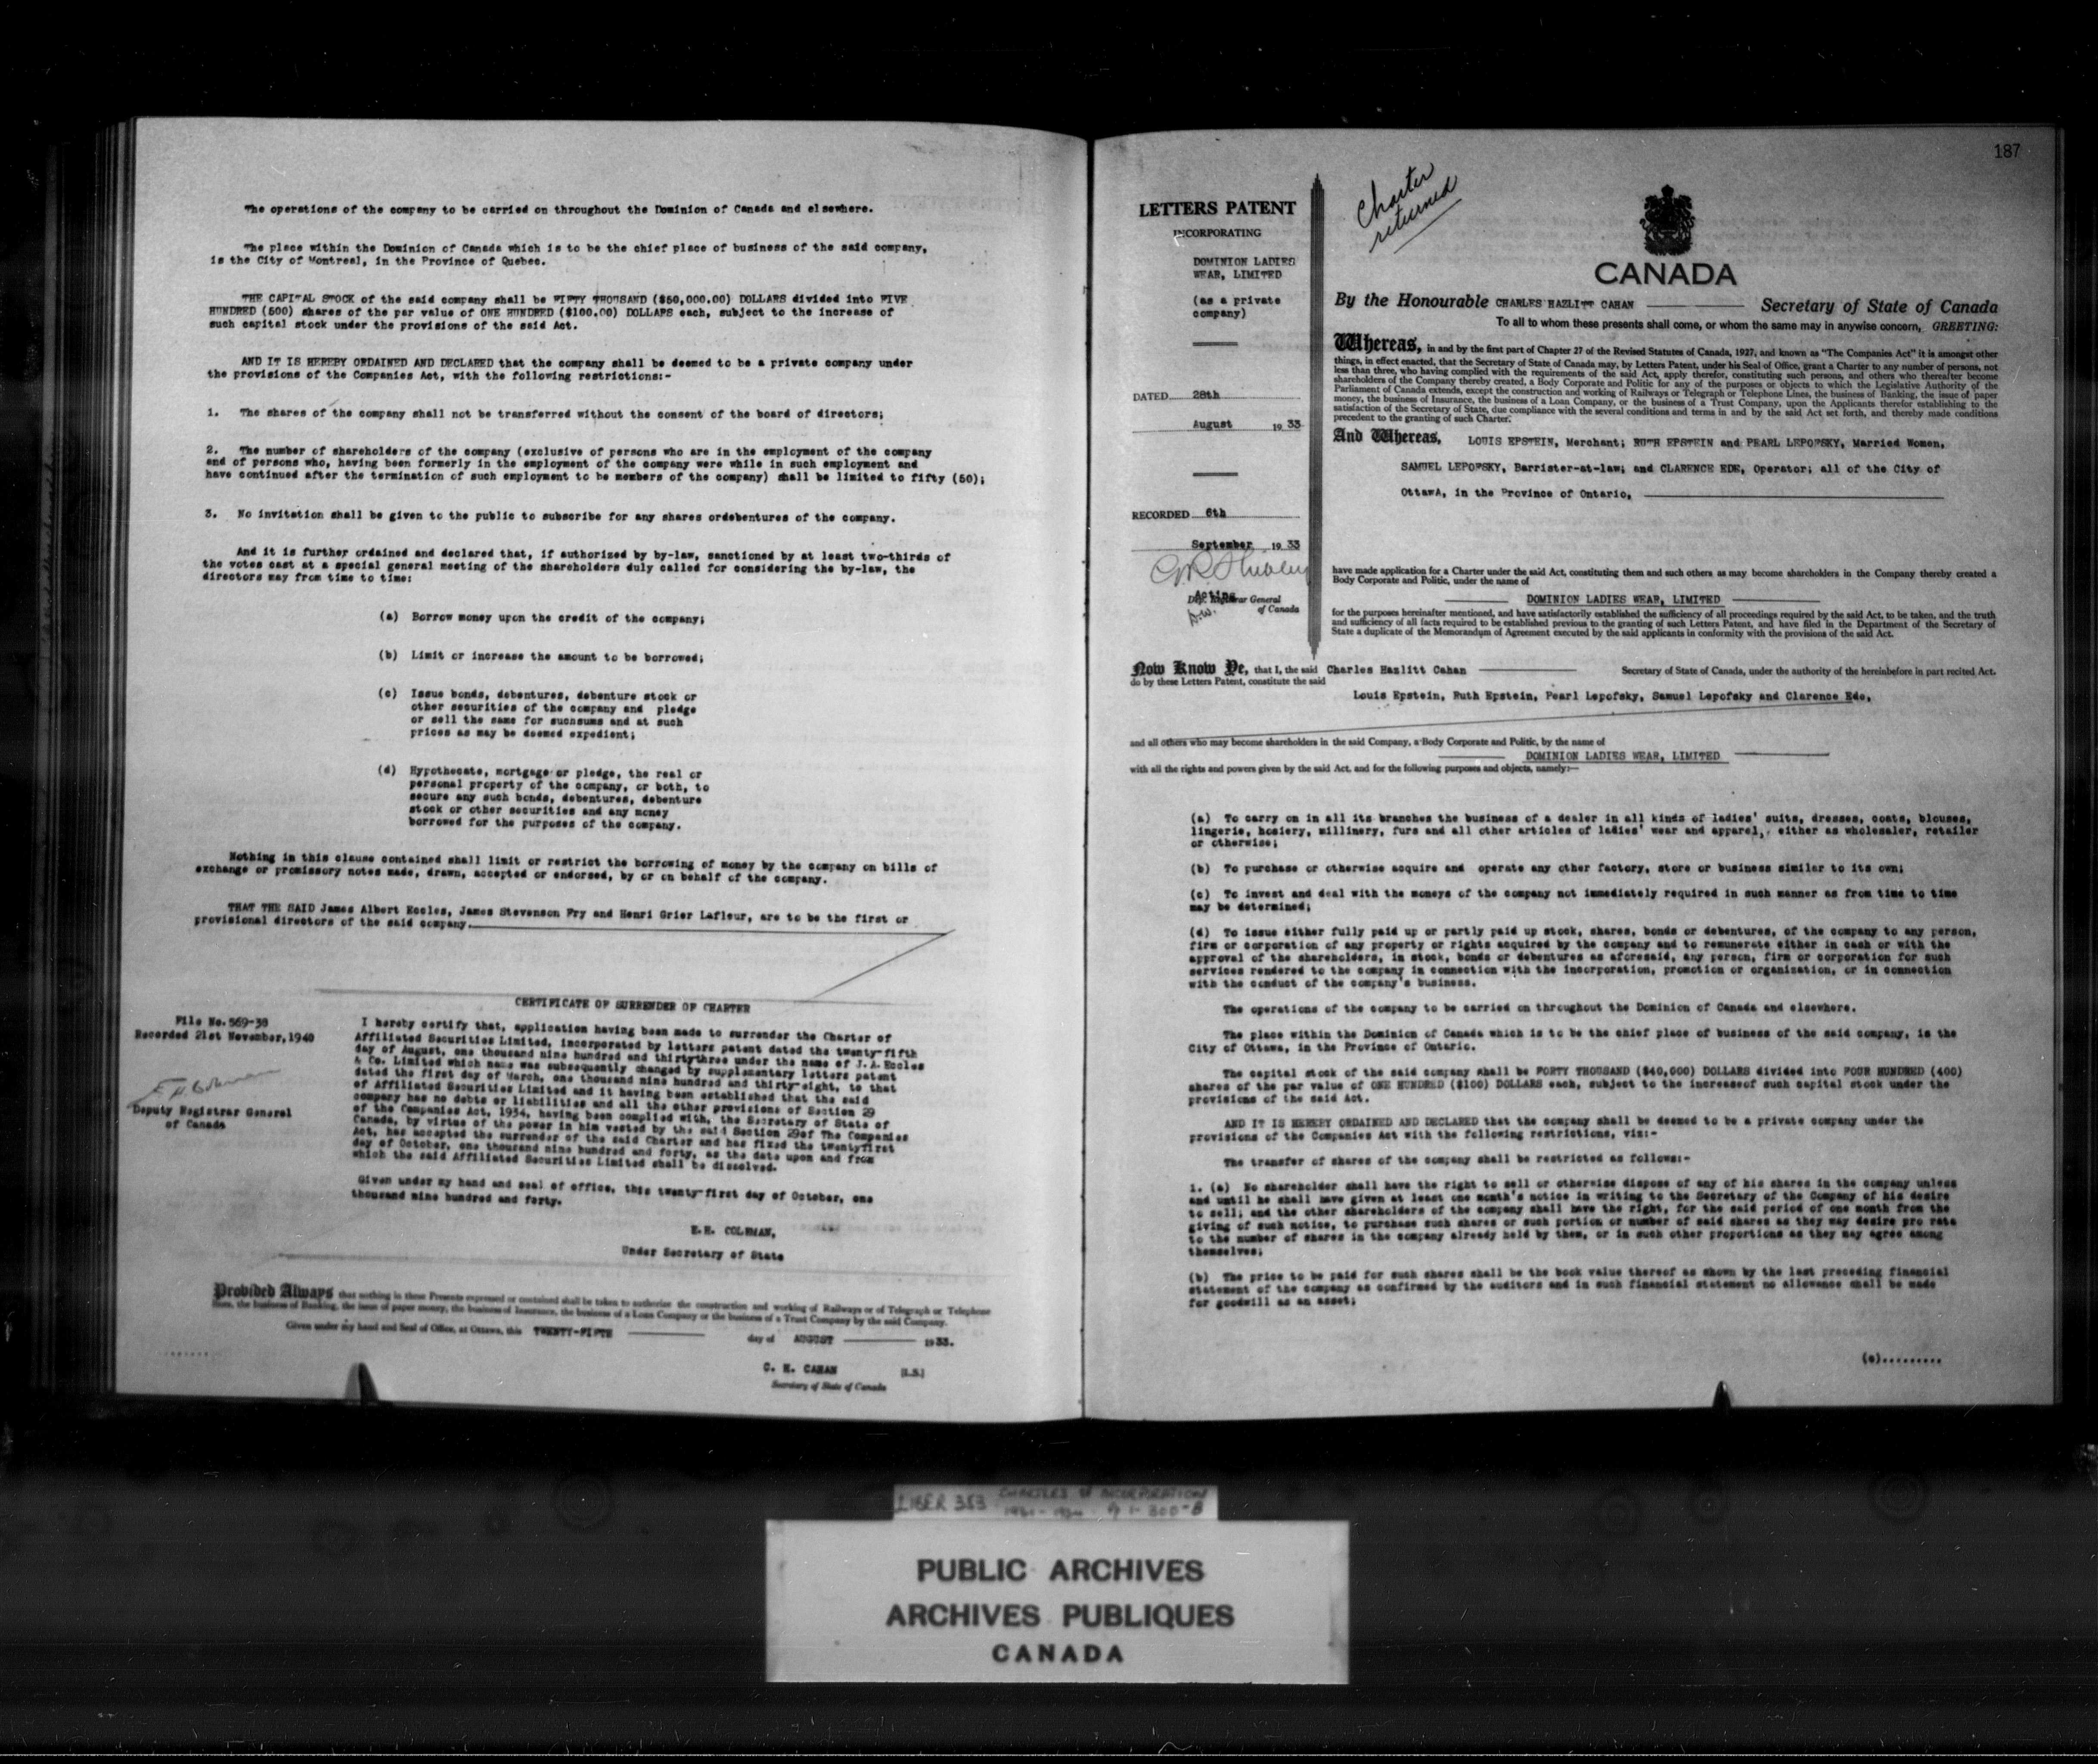 The operations of the company to be carried on throughout the Dominion of Canada and elsewhere.
The place within the Dominion of Canada which is to be the chief place of business of the said company,
is the City of Montreal, in the Province of Quebec.
THE CAPITAL STOCK of the said company shall be FIFTY THOUSAND ($50,000.00) DOLLARS divided into FIVE
HUNDRED (500) shares of the par value of ONE HUNDRED ($100.00) DOLLARS each, subject to the increase of
such capital stock under the provisions of the said Act.
AND IT IS HEREBY ORDAINED AND DECLARED that the company shall be deemed to be a private company under
the provisions of the Companies Act, with the following restrictions:-
1. The shares of the company shall not be transferred without the consent of the board of directors;
2. The number of shareholders of the company (exclusive of persons who are in the employment of the company
and of persons who, having been formerly in the employment of the company were while in such employment and
have continued after the termination of such employment to be members of the company) shall be limited to fifty (50);
3. No invitation shall be given to the public to subscribe for any shares ordebentures of the company.
And it is further ordained and declared that, if authorized by by-law, sanctioned by at least two-thirds of
the votes cast at a special general meeting of the shareholders duly called for considering the by-law, the
directors may from time to time:
(a) Borrow money upon the credit of the company;
(b) Limit or increase the amount to be borrowed;
(c) Issue bonds, debentures, debenture stock or
other securities of the company and pledge
or sell the same for suchsums and at such
prices as may be deemed expedient;
(d) Hypothecate, mortgage or pledge, the real or
personal property of the company, or both, to
secure any such bonds, debentures, debenture
stock or other securities and any money
borrowed for the purposes of the company.
Nothing in this clause contained shall limit or restrict the borrowing of money by the company on bills of
exchange or promissory notes made, drawn, accepted or endorsed, by or on behalf of the company.
THAT THE SAID James Albert Eccles, James Stevenson Fry and Henri Grier Lafleur, are to be the first or
provisional directors of the said company.
CERTIFICATE OF SURRENDER OF CHARTER
File No. 569-38
Recorded 21st November, 1940
Deputy Registrar General
of Canada
I hereby certify that, application having been made to surrender the Charter of
Affiliated Securities Limited, incorporated by letters patent dated the twenty-fifth
day of August, one thousand nine hundred and thirtythree under the name of J.A. Eccles
& Co. Limited which name was subsequently changed by supplementary letters patent
dated the first day of March, one thousand nine hundred and thirty-eight, to that
of Affiliated Securities Limited and it having been established that the said
company has no debts or liabilities and all the other provisions of Section 29
of the Companies Act, 1934, having been complied with, the Secretary of State of
Canada, by virtue of the power in him vested by the said Section 29of The Companies
Act, has accepted the surrender of the said Charter and has fixed the twentyfirst
day of October, one thousand nine hundred and forty, as the date upon and from
which the said Affiliated Securities Limited shall be dissolved.
Given under my hand and seal of office, this twenty-first day of October, one
thousand nine hundred and forty.
E.H. COLEMAN,
Under Secretary of State
Provided Always that nothing in these Presents expressed or contained shall be taken to authorize the construction and working of Railways or of Telegraph or Telephone
lines, the business of Banking, the issue of paper money, the business of Insurance, the business of a Loan Company or the business of a Trust Company by the said Company.
Given under my hand and Seal of Office, at Ottawa, this TWENTY-FIFTH day of AUGUST 1933.
C. H. CAHAN [L.S.]
Secretary of State of Canada
187
LETTERS PATENT
INCORPORATING
DOMINION LADIES
WEAR, LIMITED
(as a private
company)
DATED 28th
August 1933
RECORDED 6th
September 1933
Acting
Dep. Registrar General
of Canada
Charter
returned
CANADA
By the Honourable CHARLES HAZLITT CAHAN Secretary of State of Canada
To all to whom these presents shall come, or whom the same may in anywise concern, GREETING:
Whereas, in and by the first part of Chapter 27 of the Revised Statutes of Canada, 1927, and known as "The Companies Act" it is amongst other
things, in effect enacted, that the Secretary of State of Canada may, by Letters Patent, under his Seal of Office, grant a Charter to any number of persons, not
less than three, who having complied with the requirements of the said Act, apply therefor, constituting such persons, and others who thereafter become
shareholders of the Company thereby created, a Body Corporate and Politic for any of the purposes or objects to which the Legislative Authority of the
Parliament of Canada extends, except the construction and working of Railways or Telegraph or Telephone Lines, the business of Banking, the issue of paper
money, the business of Insurance, the business of a Loan Company, or the business of a Trust Company, upon the Applicants therefor establishing to the
satisfaction of the Secretary of State, due compliance with the several conditions and terms in and by the said Act set forth, and thereby made conditions
precedent to the granting of such Charter.
And Whereas, LOUIS EPSTEIN, Merchant; RUTH EPSTEIN and PEARL LEPOFSKY, Married Women,
SAMUEL LEPOFSKY, Barrister-at-law; and CLARENCE EDE, Operator; all of the City of
OttawA, in the Province of Ontario,
have made application for a Charter under the said Act, constituting them and such others as may become shareholders in the Company thereby created a
Body Corporate and Politic, under the name of
DOMINION LADIES WEAR, LIMITED
for the purposes hereinafter mentioned, and have satisfactorily established the sufficiency of all proceedings required by the said Act, to be taken, and the truth
and sufficiency of all facts required to be established previous to the granting of such Letters Patent, and have filed in the Department of the Secretary of
State a duplicate of the Memorandum of Agreement executed by the said applicants in conformity with the provisions of the said Act.
Now Know Ye, that I, the said Charles Hazlitt Cahan Secretary of State of Canada, under the authority of the hereinbefore in part recited Act.
do by these Letters Patent, constitute the said
Louis Epstein, Ruth Epstein, Pearl Lepofsky, Samuel Lepofsky and Clarence Ede,
and all others who may become shareholders in the said Company, a Body Corporate and Politic, by the name of
DOMINION LADIES WEAR, LIMITED
with all the rights and powers given by the said Act, and for the following purposes and objects, namely:—
(a) To carry on in all its branches the business of a dealer in all kinds of ladies' suits, dresses, coats, blouses,
lingerie, hosiery, millinery, furs and all other articles of ladies' wear and apparel, either as wholesaler, retailer
or otherwise;
(b) To purchase or otherwise acquire and operate any other factory, store or business similar to its own;
(c) To invest and deal with the moneys of the company not immediately required in such manner as from time to time
may be determined;
(d) To issue either fully paid up or partly paid up stock, shares, bonds or debentures, of the company to any person,
firm or corporation of any property or rights acquired by the company and to remunerate either in cash or with the
approval of the shareholders, in stock, bonds or debentures as aforesaid, any person, firm or corporation for such
services rendered to the company in connection with the incorporation, promotion or organization, or in connection
with the conduct of the company's business.
The operations of the company to be carried on throughout the Dominion of Canada and elsewhere.
The place within the Dominion of Canada which is to be the chief place of business of the said company, is the
City of Ottawa, in the Province of Ontario.
The capital stock of the said company shall be FORTY THOUSAND ($40,000) DOLLARS divided into FOUR HUNDRED (400)
shares of the par value of ONE HUNDRED ($100) DOLLARS each, subject to the increaseof such capital stock under the
provisions of the said Act.
AND IT IS HEREBY ORDAINED AND DECLARED that the company shall be deemed to be a private company under the
provisions of the Companies Act with the following restrictions, viz:-
The transfer of shares of the company shall be restricted as follows:-
1. (a) No shareholder shall have the right to sell or otherwise dispose of any of his shares in the company unless
and until he shall have given at least one month's notice in writing to the Secretary of the Company of his desire
to sell; and the other shareholders of the company shall have the right, for the said period of one month from the
giving of such notice, to purchase such shares or such portion or number of said shares as they may desire pro rata
to the number of shares in the company already held by them, or in such other proportions as they may agree among
themselves;
(b) The price to be paid for such shares shall be the book value thereof as shown by the last preceding financial
statement of the company as confirmed by the auditors and in such financial statement no allowance shall be made
for goodwill as an asset;
(c).........
LIBER 353 CHARTERS OF INCORPORATION
PUBLIC ARCHIVES
ARCHIVES PUBLIQUES
CANADA